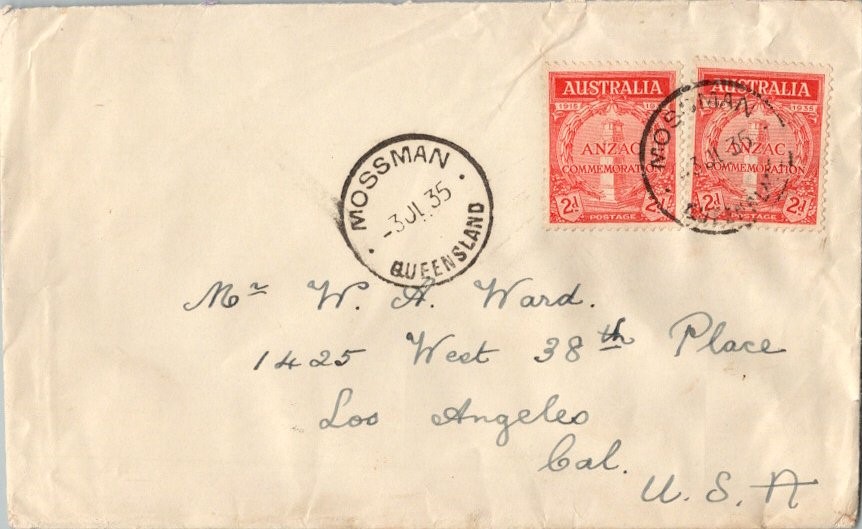 AUSTRALIA
1915 1935
ANZAC
COMMEMORATION
2d POSTAGE 2d
AUSTRALIA
1915 1935
ANZAC
COMMEMORATION
2d POSTAGE 2d
MOSSMAN
-3 JL 35
QUEENSLAND
MOSSMAN
-3 JL 35
Mr W. A. Ward.
1425 West 38th Place
Los Angeles
Cal.
U. S. A